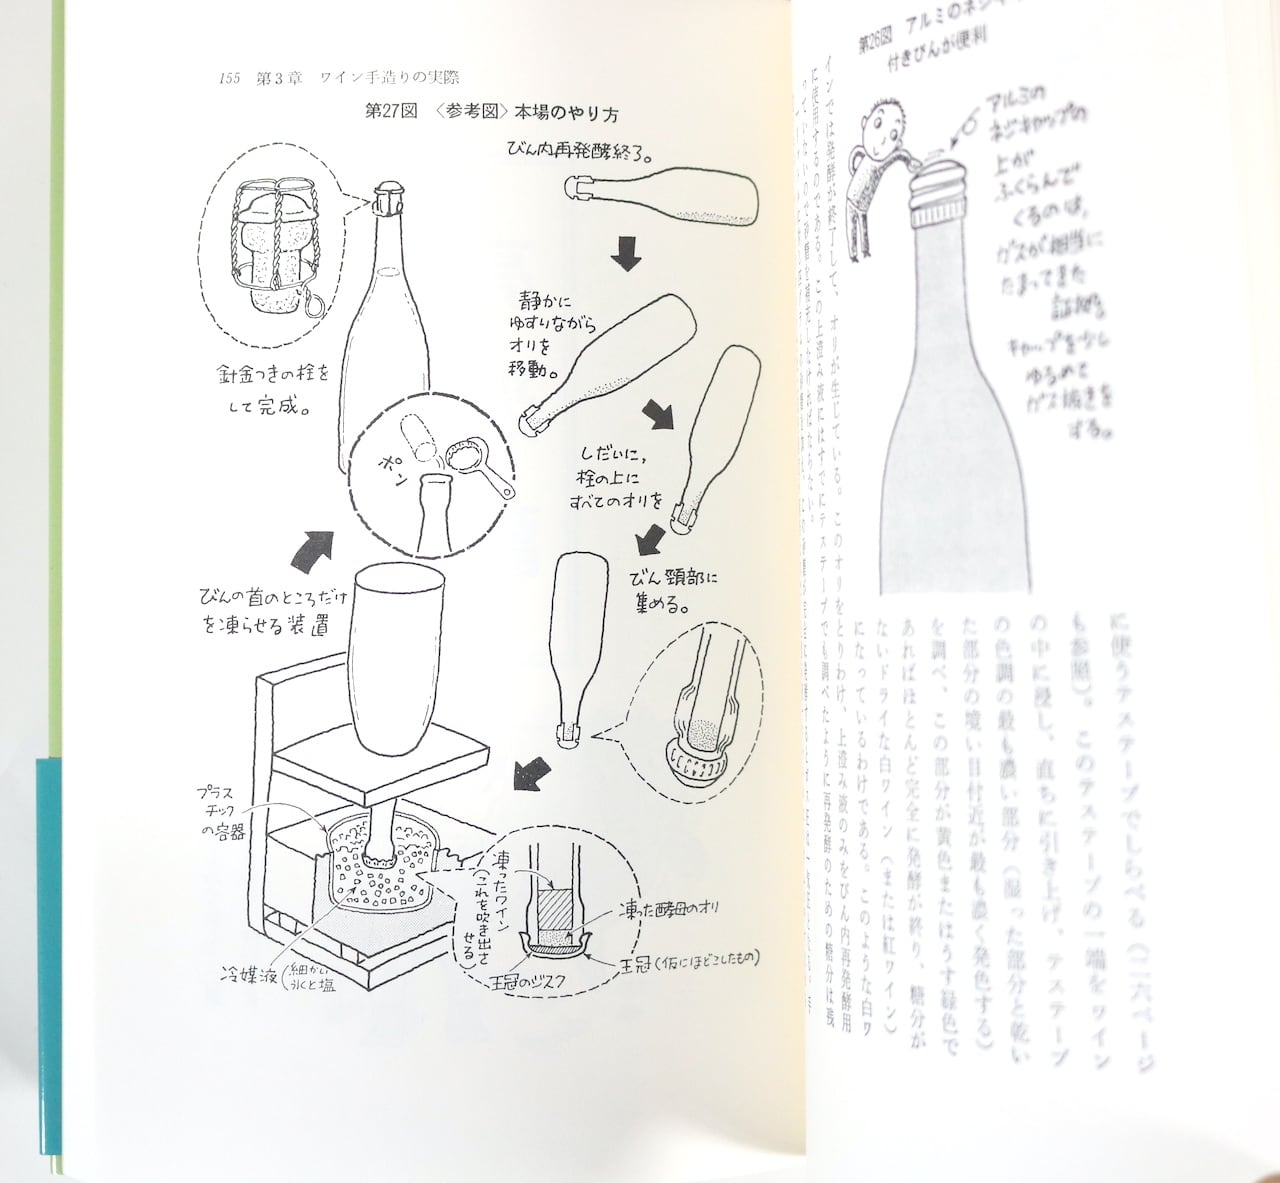 155 第3章 ワイン手造りの実際
第27図 〈参考図〉本場のやり方
びん内再発酵終了。
静かに
ゆすりながら
オリを
移動。
しだいに,
栓の上に
すべてのオリを
びん頸部に
集める。
針金つきの栓を
して完成。
ポン
びんの首のところだけ
を凍らせる装置
プラス
チック
の容器
冷媒液(細かい
氷と塩
凍ったワイン
(これを吹き出さ
せる)
凍った酵母のオリ
王冠(仮にほどこしたもの)
王冠のジスク
第26図 アルミのネジキャ
付きびんが便利
アルミの
ネジキャップの
上が
ふくらんで
くるのは,
ガスが相当に
たまってきた
証拠。
キャップを少し
ゆるめて
ガス抜きを
する。
に使うテステープでしらべる(二六ページ
も参照)。このテステープの一端をワイン
の中に浸し、直ちに引き上げ、テステープ
の色調の最も濃い部分(湿った部分と乾い
た部分の境い目付近が最も濃く発色する)
を調べ、この部分が黄色またはうす緑色で
あればほとんど完全に発酵が終り、糖分が
ないドライな白ワイン(または紅ワイン)
になっているわけである。このような白ワ
インでは発酵が終了して、オリが生じている。このオリをとりわけ、上澄み液のみをびん内再発酵用
に使用するのである。この上澄み液にはすでにテステープでも調べたように再発酵のための糖分は残
っていないので砂糖を補充しなければならない。